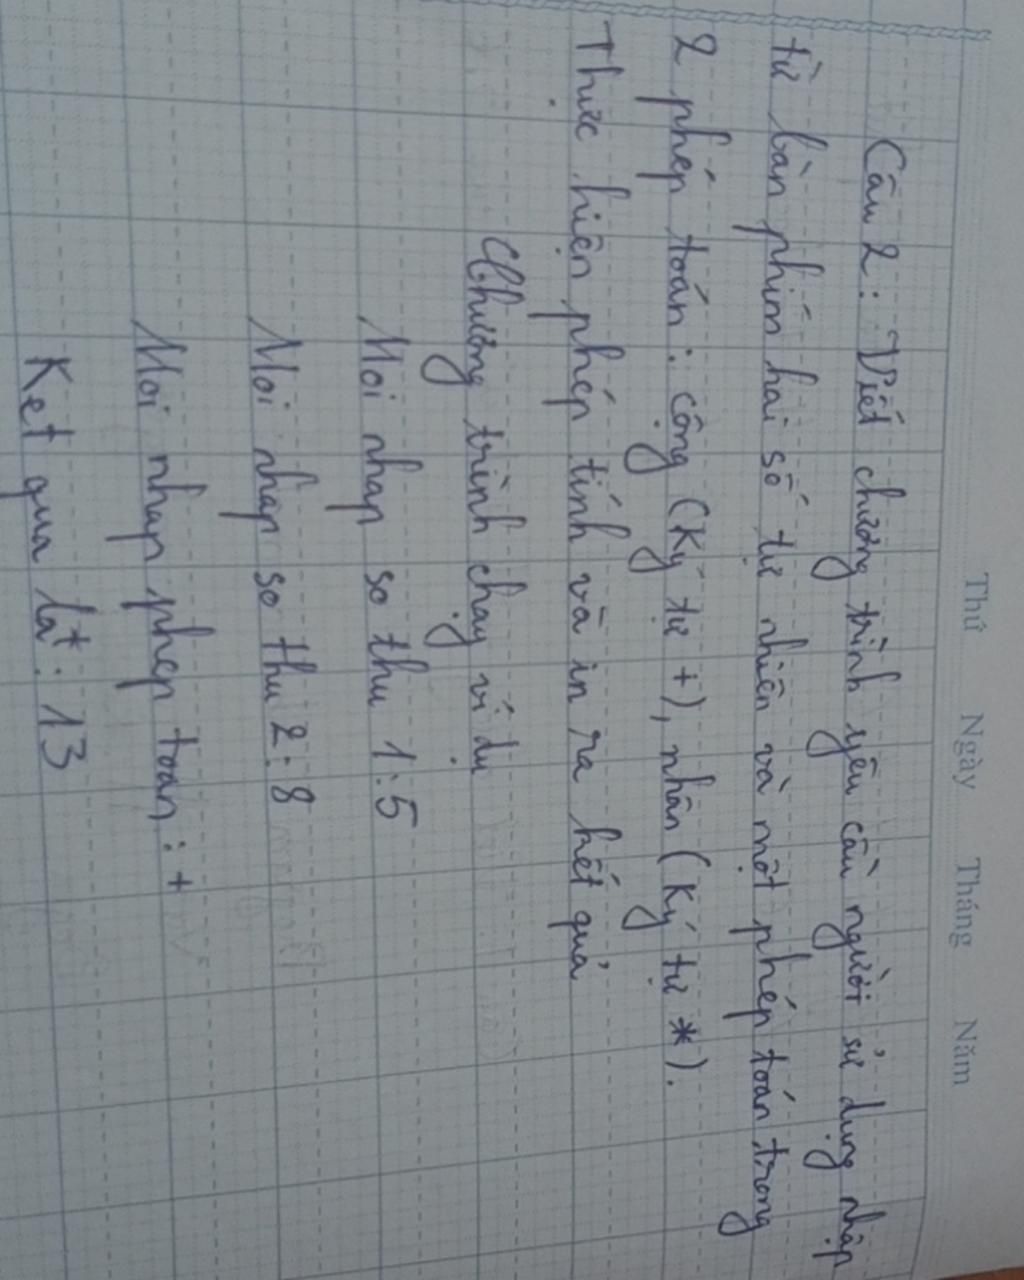 Thứ Ngày Tháng Năm
Câu 2: Viết chương trình yêu cầu người sử dụng nhập
từ bàn phím hai số tự nhiên và một phép toán trong
2 phép toán: cộng (Ký tự +), nhân (Ký tự *).
Thực hiện phép tính và in ra kết quả
Chương trình chạy ví dụ
Moi nhap so thu 1: 5
Moi nhap so thu 2: 8
Moi nhap phep toan: +
Ket qua : 13